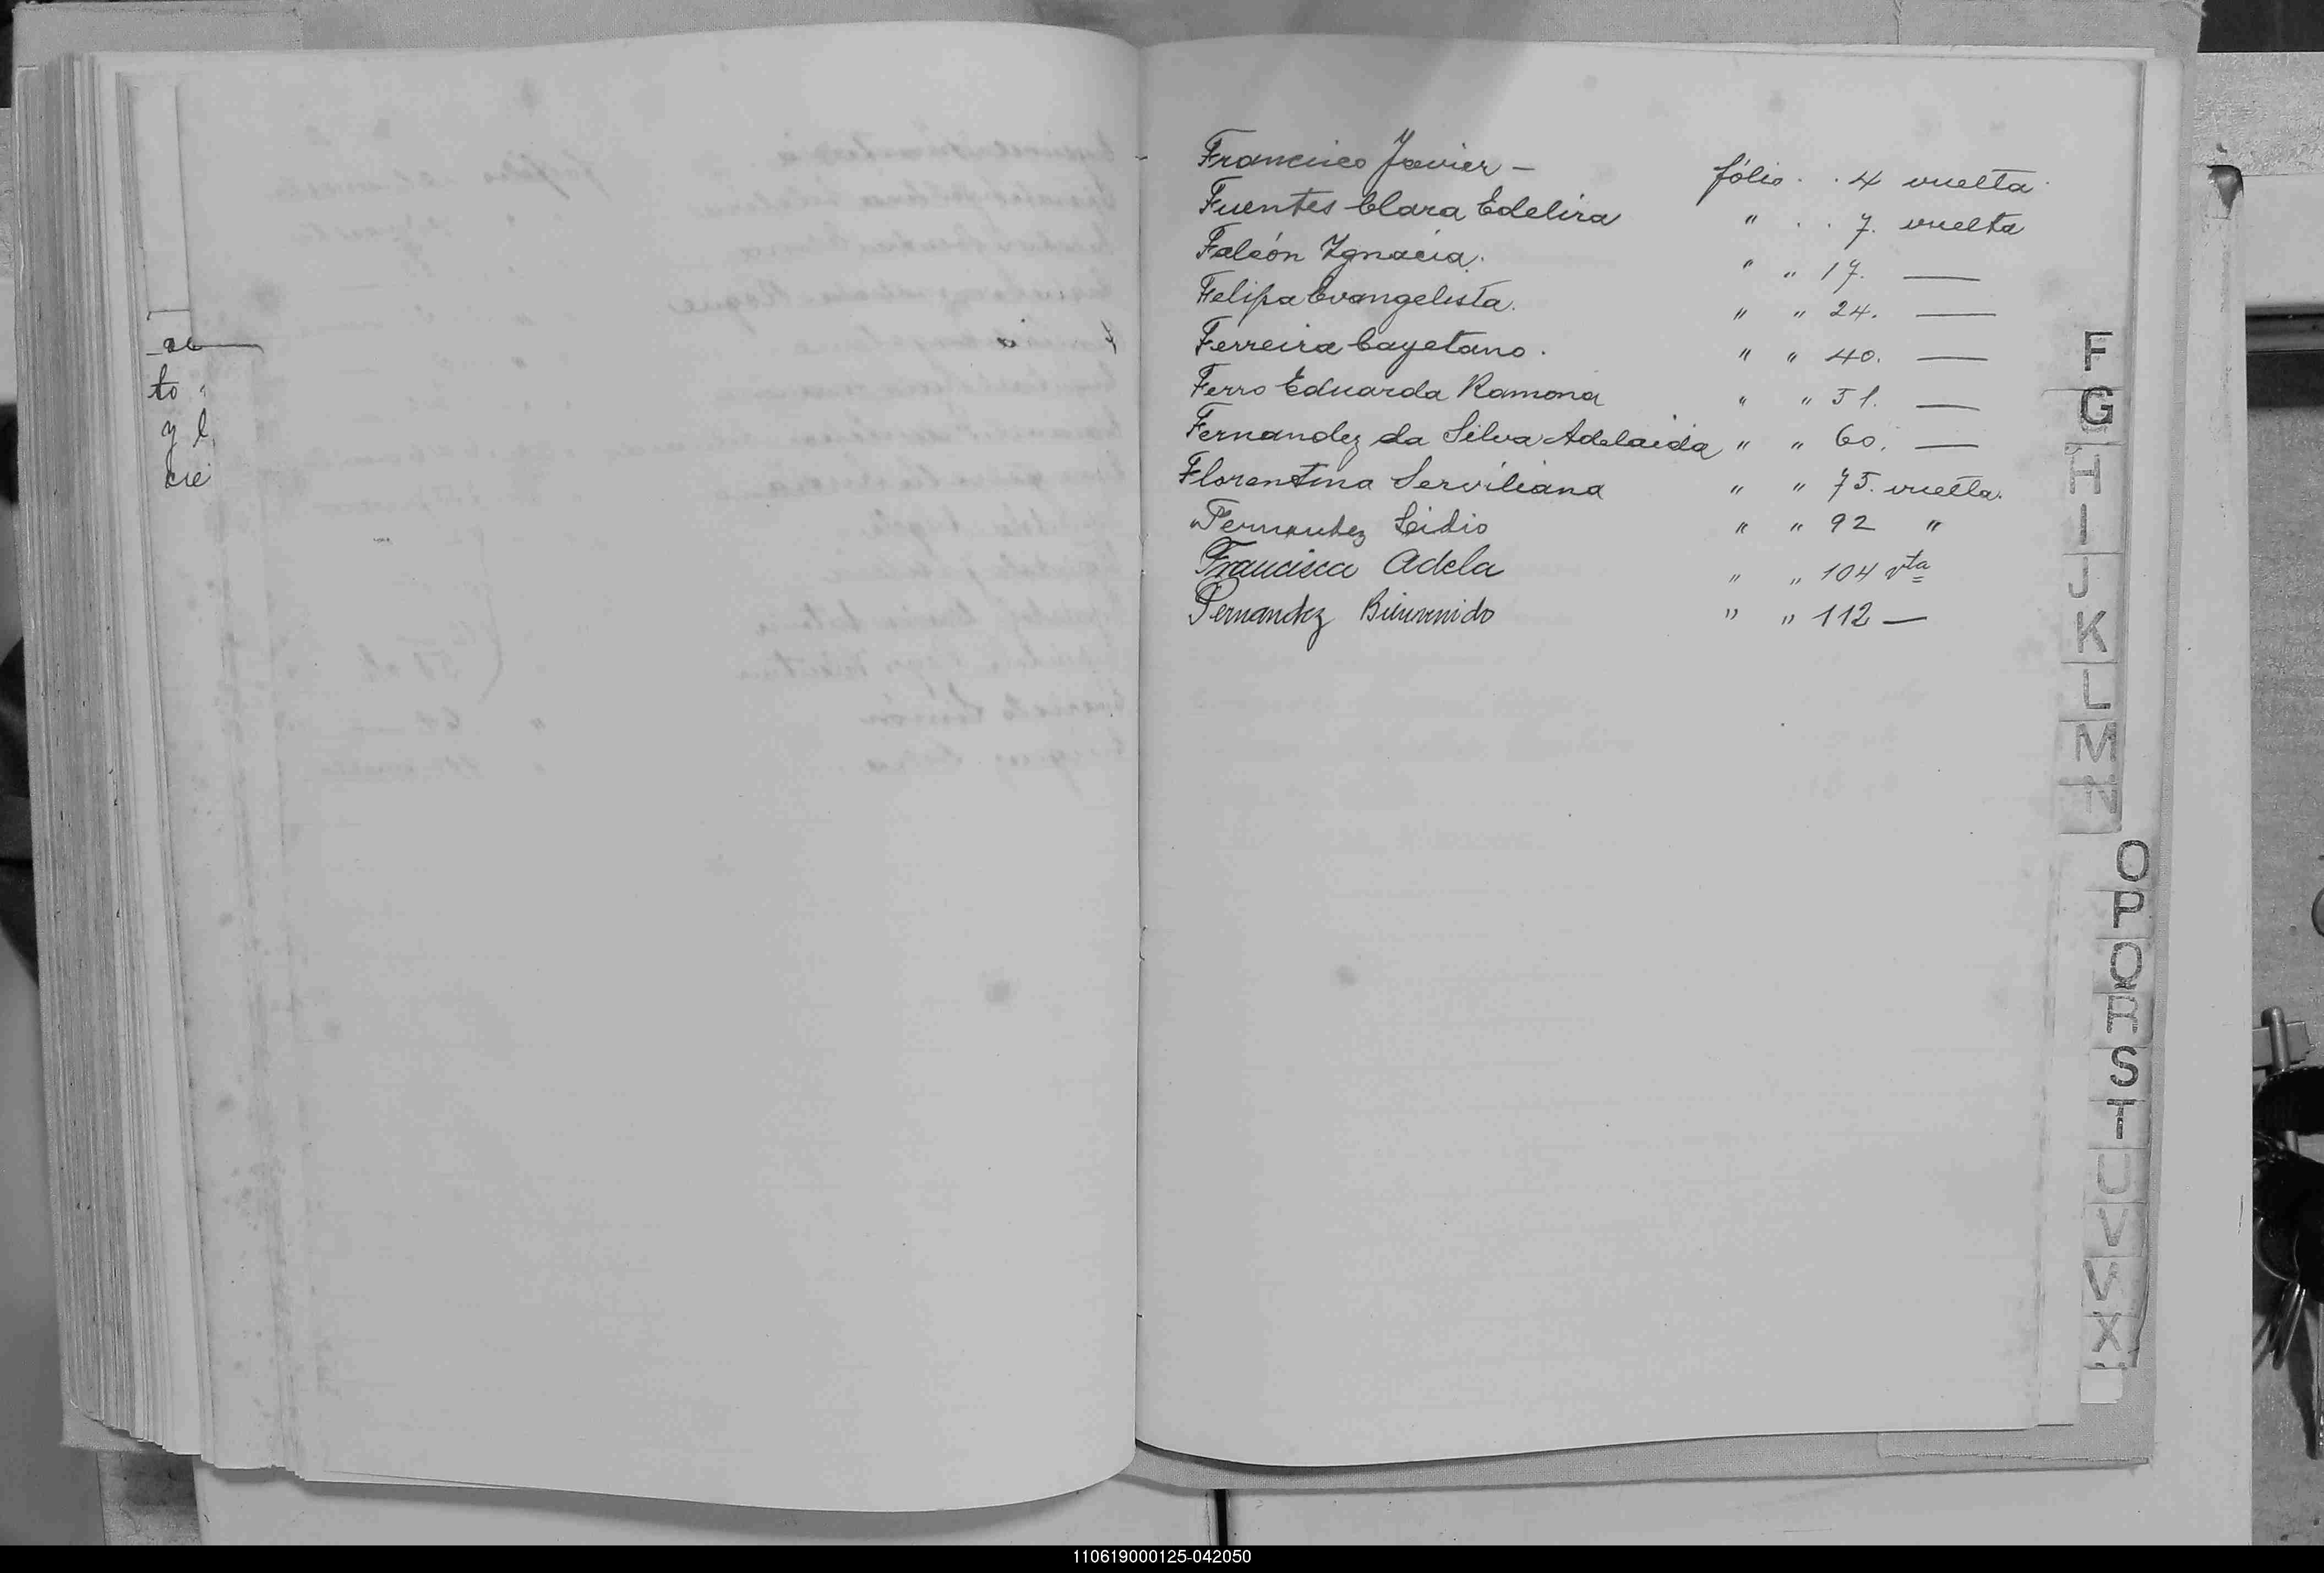 ae
to "
y l
cie
Francisco Javier — fólio . . 4 vuelta
Fuentes Clara Edelira " . . 7. vuelta
Falcón Ygnacia. " " 17. —
Felipa Evangelista. " " 24. —
Ferreira Cayetano. " " 40. —
Ferro Eduarda Ramona " " 51. —
Fernandez da Silva Adelaida " " 60. —
Florentina Serviliana " " 75. vuelta.
Fernandez Lidio " " 92 "
Francisca Adela " " 104 vta
Fernandez Bienvenido " " 112 —
F
G
H
I
J
K
L
M
N
O
P
Q
R
S
T
U
V
V
X
110619000125-042050